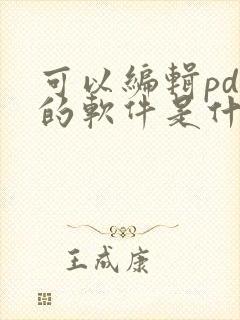 可以編輯pd
的軟件是什
王成康